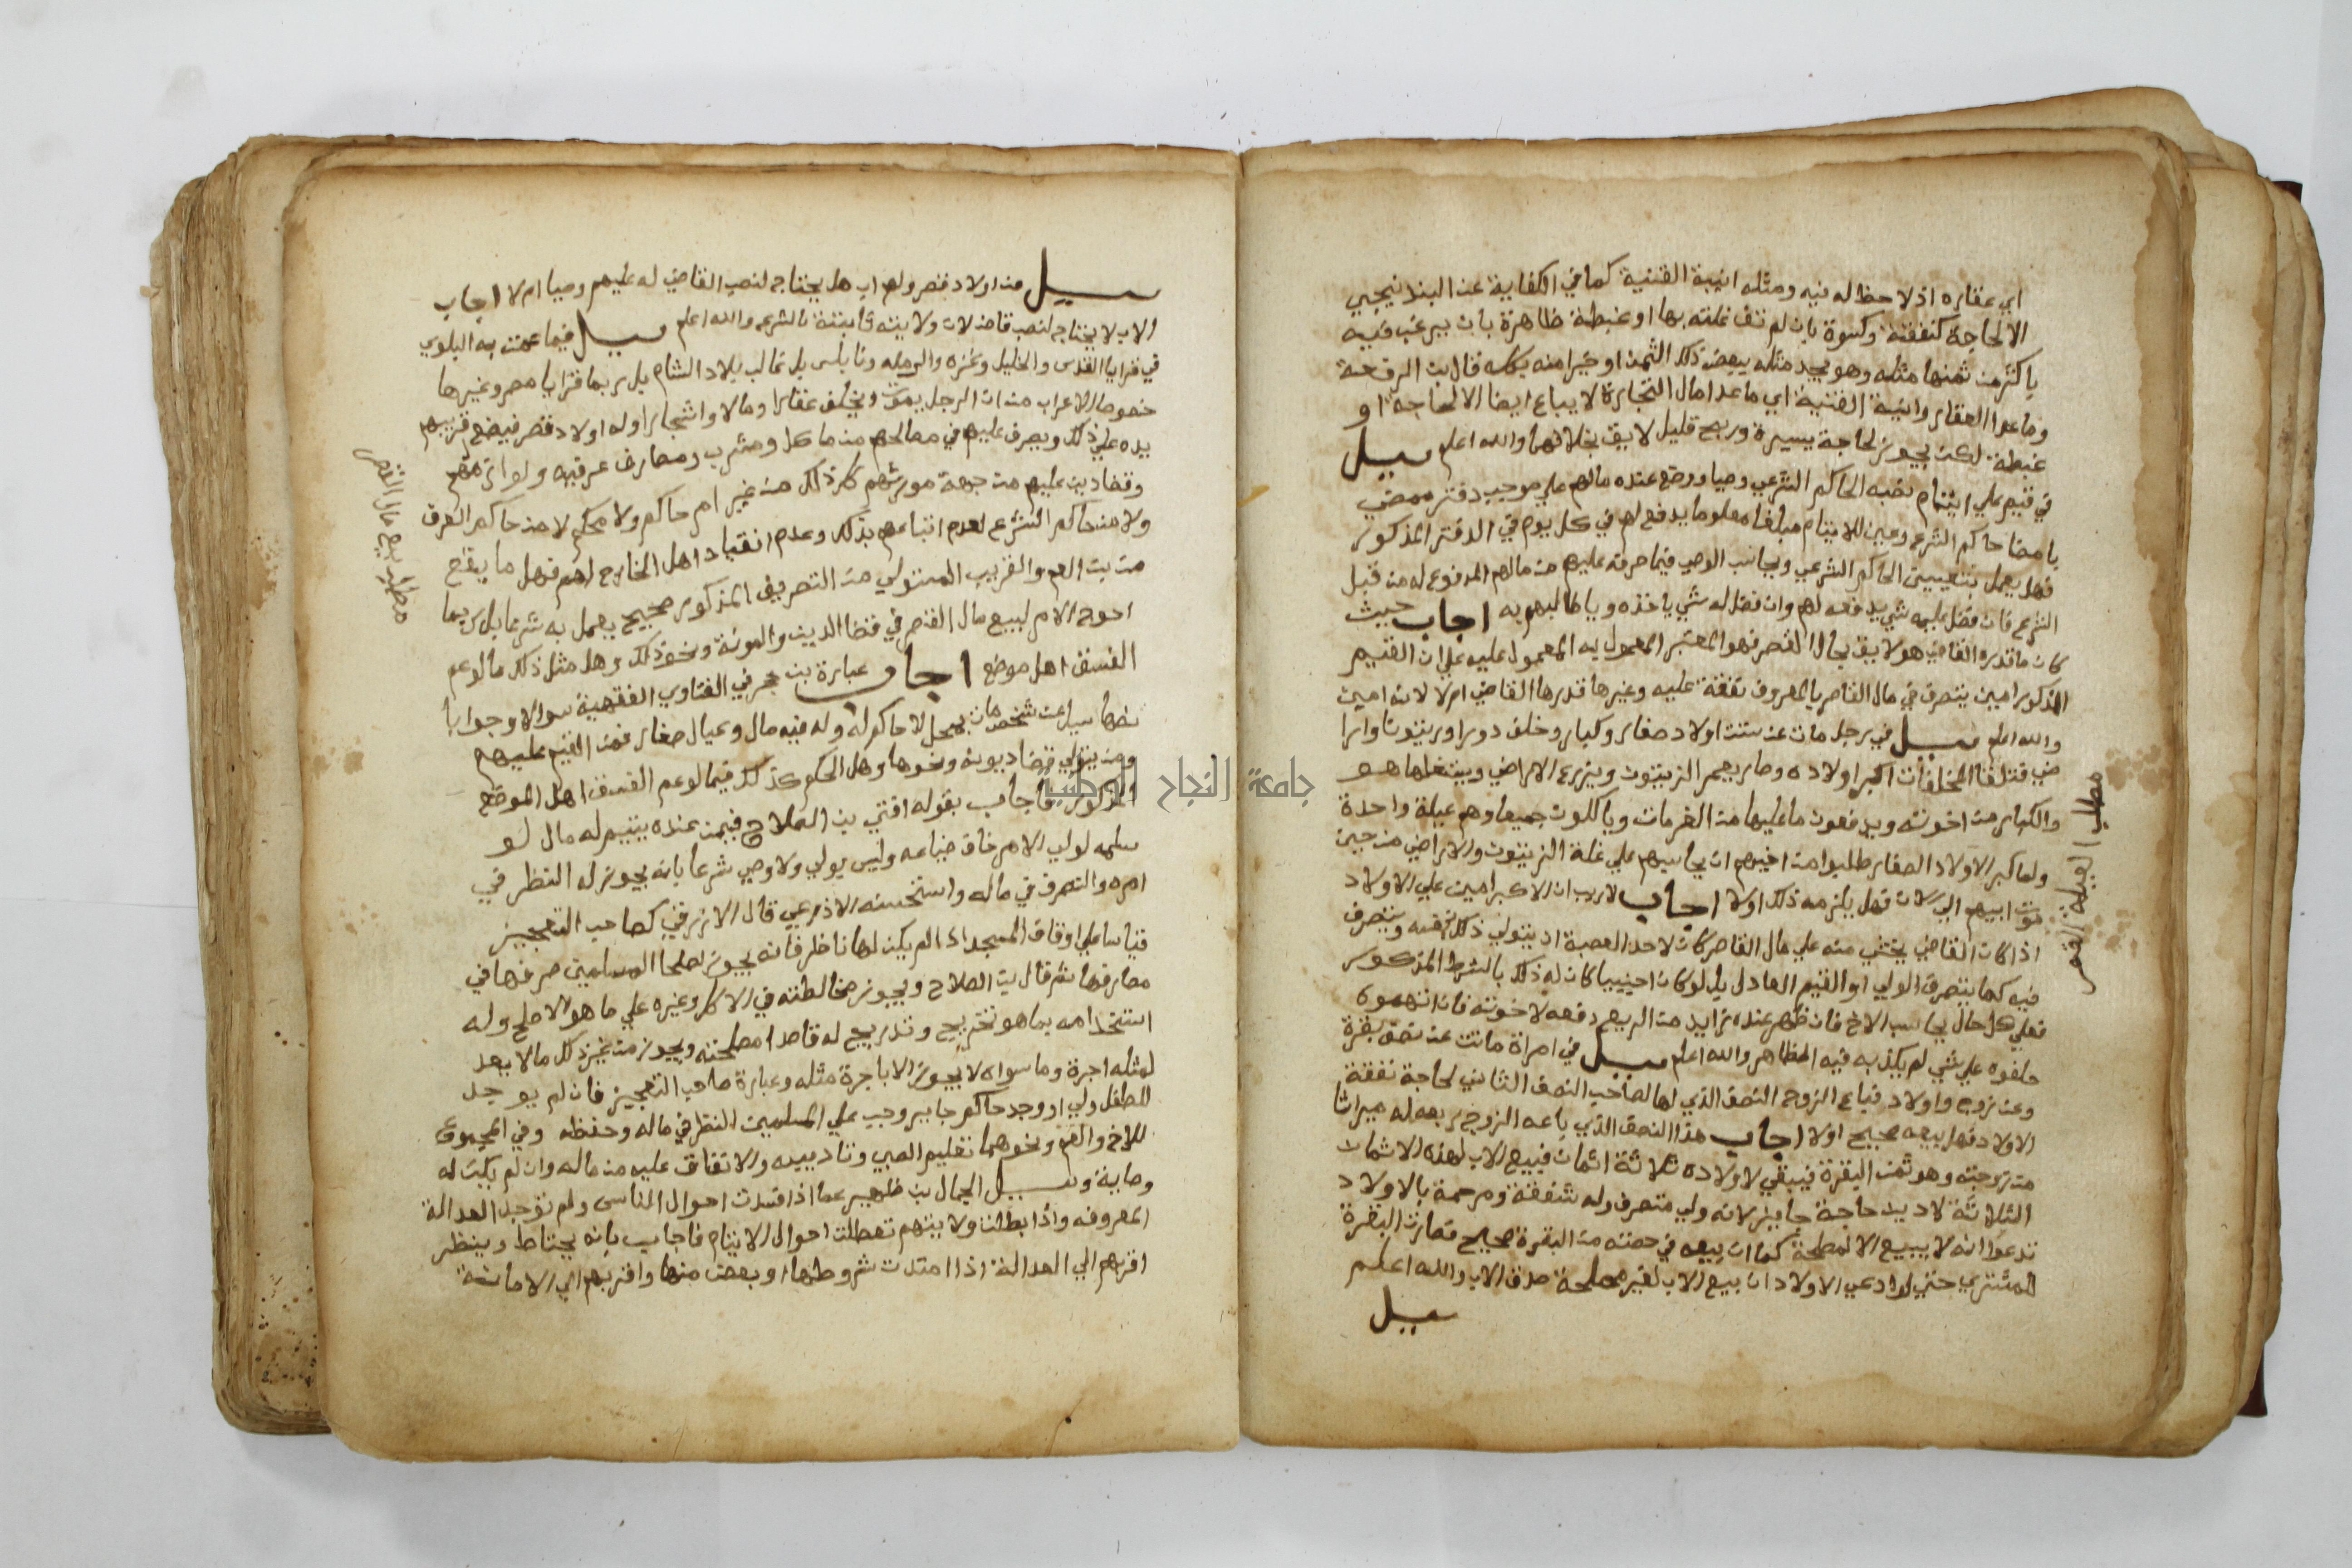 اي عقاره اذ لا حظ له فيه ومثله انية القنية كما في الكفاية عن البندنيجي
الا لحاجة كنفقة وكسوة بان لم تف غلته بها او غبطة ظاهرة بان يرغب فيه
باكثر من ثمنها مثله وهو يجد مثله ببعض ذلك الثمن او خيرا منه بكله قال بن الرفعة
وما عدا العقار وانية القنية اي ما عدا مال التجارة لا يباع ايضا الا لحاجة او
غبطة لكن يجوز لحاجة يسيرة وربح قليل لايق بخلافهما والله اعلم سيل
في قيم علي ايتام نصبه الحاكم الشرعي وصيا ووضع عنده مالهم علي موجب دفتر ممضي
بامضا حاكم الشرع وعين للايتام مبلغا معلوما يدفع لهم في كل يوم في الدفتر المذكور
فهل يعمل بتعيين الحاكم الشرعي ويحاسب الوصي فيما صرفه عليهم من مالهم المدفوع له من قبل
الشرع فان فضل عليه شي يدفعه لهم وان فضل له شي ياخذه ويطالبهم به اجاب حيث
كان ما قدره القاضي هو لايق بحال القصر فهو المعتبر المعمول به المعمول عليه علي ان القيم
المذكور امين يتصرف في مال القاصر بالمعروف نفقة عليه وغيرها قدرها القاضي ام لا لانه امين
والله اعلم سيل في رجل مات عن ستة اولاد صغار وكبار وخلف دورا وزيتونا وارا
ضي فتلقا المخلفات اكبر اولاده وصار يعمر الزيتون ويزرع الاراضي ويشغلها هو
والكبار من اخوته ويدفعون ما عليها من الغرمات وياكلون جميعا وهم عيلة واحدة
ولما كبر الاولاد الصغار طلبوا من اخيهم ان يحاسبهم علي غلة الزيتون والاراضي من حين
موت ابيهم الي الان فهل يلزمه ذلك اولا اجاب لاريب ان الاكبر امين علي الاولاد
اذا كان القاضي يخشي منه علي مال القاصر كان لاحد العصبة ان يتولي ذلك بنفسه ويتصرف
فيه كما يتصرف الولي او القيم العادل بل لو كان اجنبيا كان له ذلك بالشرط المذكور
فعلي كل حال يحاسب الاخ فان ظهر عنده زايد من الريع دفعه لاخوته فان اتهموه
حلفوه علي شي لم يكذبه فيه الظاهر والله اعلم سيل في امراة ماتت عن نصف بقرة
وعن زوج واولاد فباع الزوج النصف الذي لها لصاحب النصف الثاني لحاجة نفقة
الاولاد فهل بيعه صحيح اولا اجاب هذا النصف الذي باعه الزوج ربعه له ميراثا
من زوجته وهو ثمن البقرة فيبقي لاولاده ثلاثة اثمان فبيع الاب لهذه الاثمان
الثلاثة لاد بد حاجة جايز لانه ولي متصرف وله شفقة ومرحمة بالاولاد
تدعوا انه لا يبيع الا لمصلحة كما ان بيعه في حصته من البقرة صحيح فصارت البقرة
للمشتري حتي لو ادعي الاولاد ان بيع الاب لغير مصلحة صدق الاب والله اعلم
سيل
مطلب العيلة القصر
سيل من اولاد قصر ولهم اب هل يحتاج لنصب القاضي له عليهم وصيا ام لا اجاب
الاب لا يحتاج لنصب قاض لان ولايته ثابتة بالشرع والله اعلم سيل فيما عمت به البلوي
في قرايا القدس والخليل وغزه والرمله ونابلس بل غالب بلاد الشام بل ربما قرايا مصر وغيرها
خصوصا الاعراب من ان الرجل يموت ويخلف عقارا ومالا واشجارا وله اولاد قصر فيضع قريبهم
يده علي ذلك ويصرف عليهم في مصالحهم من ماكل ومشرب ومصارف عرفيه ولوازمهم
وقضا دين عليهم من جهة مورثهم كل ذلك من غير امر حاكم ولا محكم لا من حاكم العرف
ولا من حاكم الشرع لعدم اتباعهم بذلك وعدم انقياد اهل الخارج لهم فهل ما يقع
من بن العم والقريب المتولي من التصريف المذكور صحيح يعمل به شرعا بل ربما
احوج الامر لبيع مال القصر في قضا الدين والمونة ونحو ذلك وهل مثل ذلك ما لو عم
الفسق اهل موضع اجاب عبارة بن حجر في الفتاوي الفقهية سوالا وجوابا
نصها سيل عن شخص مات بمحل لا حاكم له وله فيه مال وعيال صغار فمن القيم عليهم
ومن يتولي قضا ديونه ونحوها وهل الحكم كذلك فيما لو عم الفسق اهل الموضع
المذكور فاجاب بقوله افتي بن الصلاح فيمن عنده يتيم له مال لو
سلمه لولي الامر خاف ضياعه وليس بولي ولا وصي شرعا بانه يجوز له النظر في
امره والتصرف في ماله واستحسنه الاذرعي قال الازرقي كصاحب التعجيز
قياسا علي اوقاف المسجد اذا لم يكن لها ناظر فانه يجوز لصلحا المسلمين صرفها في
مصارفها ثم قال بن الصلاح ويجوز مخالطته في الاكل وغيره علي ما هو الاصلح وله
استخدامه بما هو تخريج وتدريج له قاصدا مصلحته ويجوز من غير ذلك ما لا يعد
لمثله اجرة وما سواه لا يجوز الا باجرة مثله وعبارة صاحب التعجيز فان لم يوجد
للطفل ولي او وجد حاكم جاير وجب علي المسلمين النظر في ماله وحفظه وفي المجموع
للاخ والعم ونحوهما تعليم الصبي وتاديبه والانفاق عليه من ماله وان لم يكن له
وصاية وسيل الجمال بن ظهير عما اذا فسدت احوال الناس ولم توجد العدالة
المعروفه واذا بطلت ولايتهم تعطلت احوال الايتام فاجاب بانه يحتاط وينظر
اقربهم الي العدالة اذا امتدت شروطها او بعض منها واقربهم الي الامانة
مطلب بيع مال القصر
جامعة النجاح الوطنية